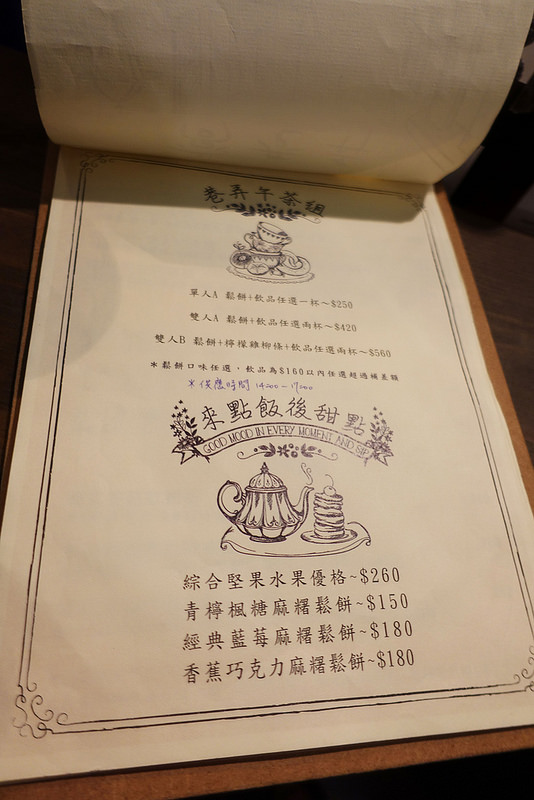 巷弄午茶組
單人A 鬆餅+飲品任選一杯~$250
雙人A 鬆餅+飲品任選兩杯~$420
雙人B 鬆餅+檸檬雞柳條+飲品任選兩杯~$560
*鬆餅口味任選，飲品為$160以內任選超過補差額
*供應時間 14:00-17:00
來點飯後甜點
GOOD MOOD IN EVERY MOMENT AND SIP
綜合堅果水果優格~$260
青檸楓糖麻糬鬆餅~$150
經典藍莓麻糬鬆餅~$180
香蕉巧克力麻糬鬆餅~$180